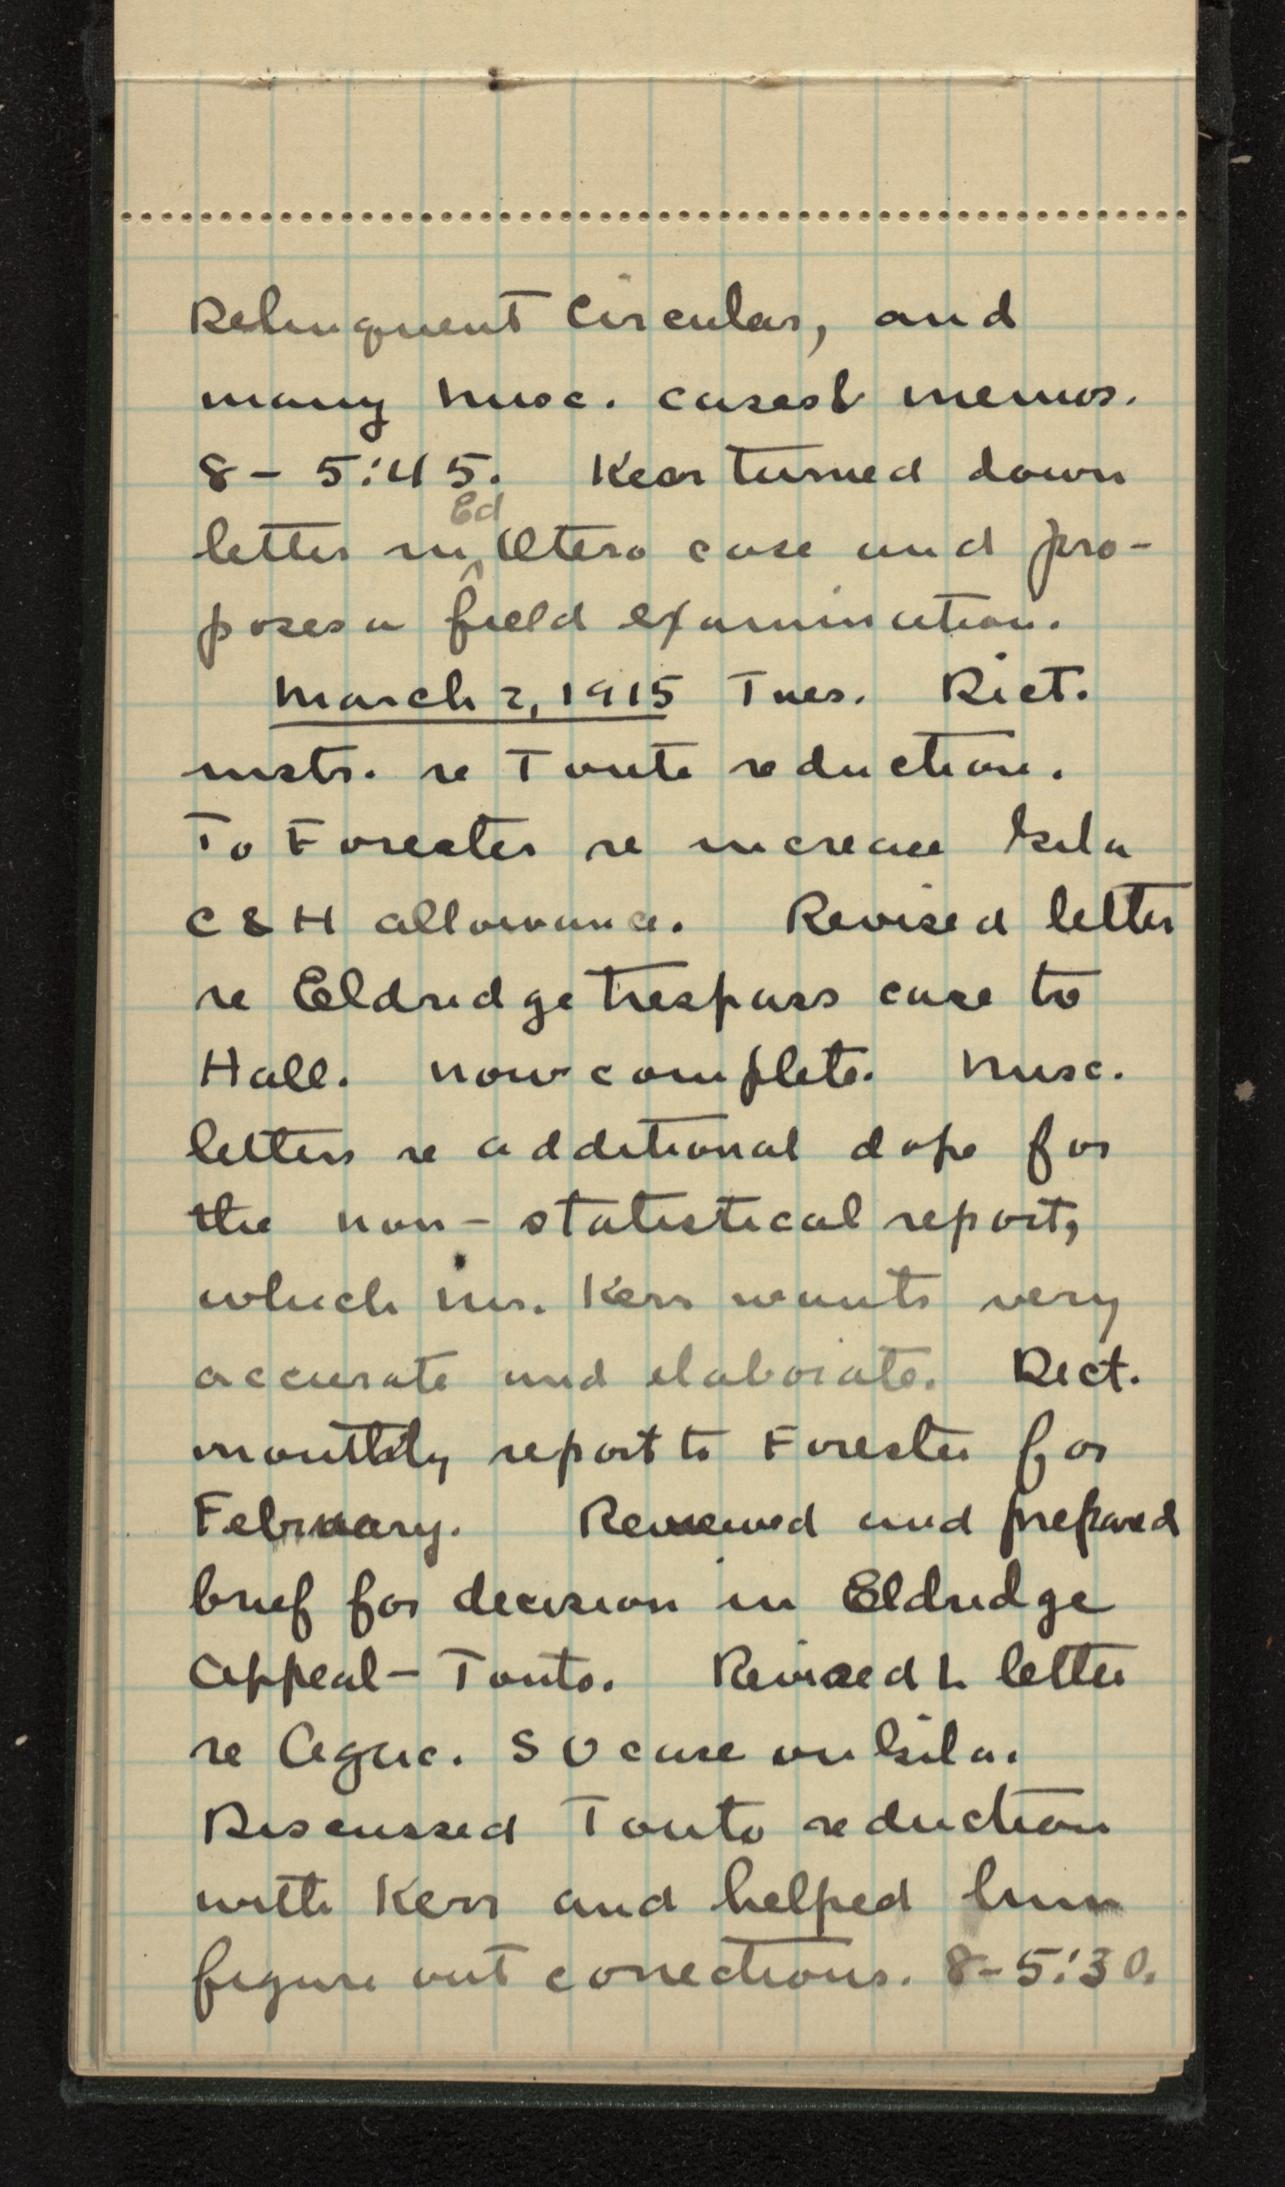 Delinquent Circular, and
many misc. cases & memos.
8 - 5:45. Kerr turned down
letter in Ed Otero case and pro-
poses a field examination.
March 2, 1915 Tues. Dict.
instr. re Tonto reduction.
To Forester re increase Gila
C & H allowance. Revised letter
re Eldredge trespass case to
Hall. now complete. Misc.
letters re additional dope for
the non-statistical report,
which Mr. Kerr wants very
accurate and elaborate. Dict.
monthly report to Forester for
February. Reviewed and prepared
brief for decision in Eldredge
Appeal - Tonto. Revised L letter
re Agric. S U case on Gila.
Discussed Tonto reduction
with Kerr and helped him
figure out corrections. 8-5:30.